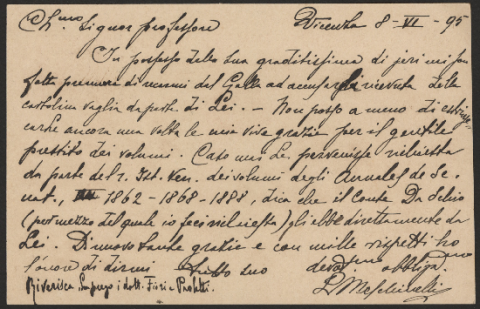 Ch.mo Signor professore Vicenza 8-VI-95
In possesso della sua graditissima di jeri mi son
fatta premura di venirmi dal Galla ad accusarle ricevuta della
cartolina vaglia da parte di Lei. - Non posso a meno di
carle ancora una volta le mie vive grazie per il gentile
prestito dei volumi. Caso mai Le pervenisse richiesta
da parte del r. Ist. Ven. dei volumi degli Annales de Se.
nat., 1862-1868-1888, dica che il Conte Da Schio
(per mezzo del quale io feci richiesta) gli ebbe direttamente da
Lei. Di nuovo tante grazie e con mille rispetti ho
l'onore di dirmi tutto suo devot.mo obblig.mo
Riverisca i dott. Fiori e Paoletti.